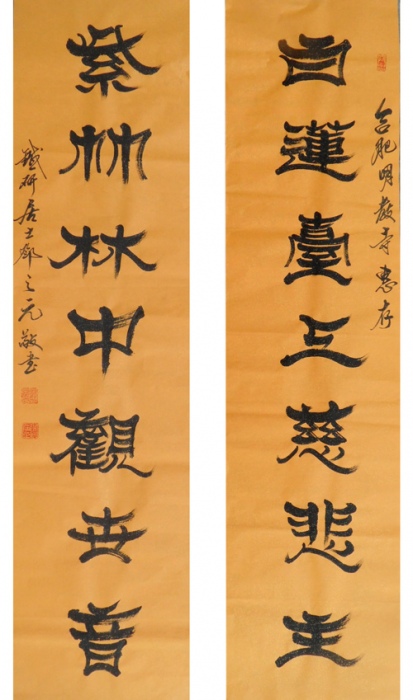 合肥明教寺惠存
白蓮臺上慈悲主
紫竹林中觀世音
铁研居士邓之元敬书